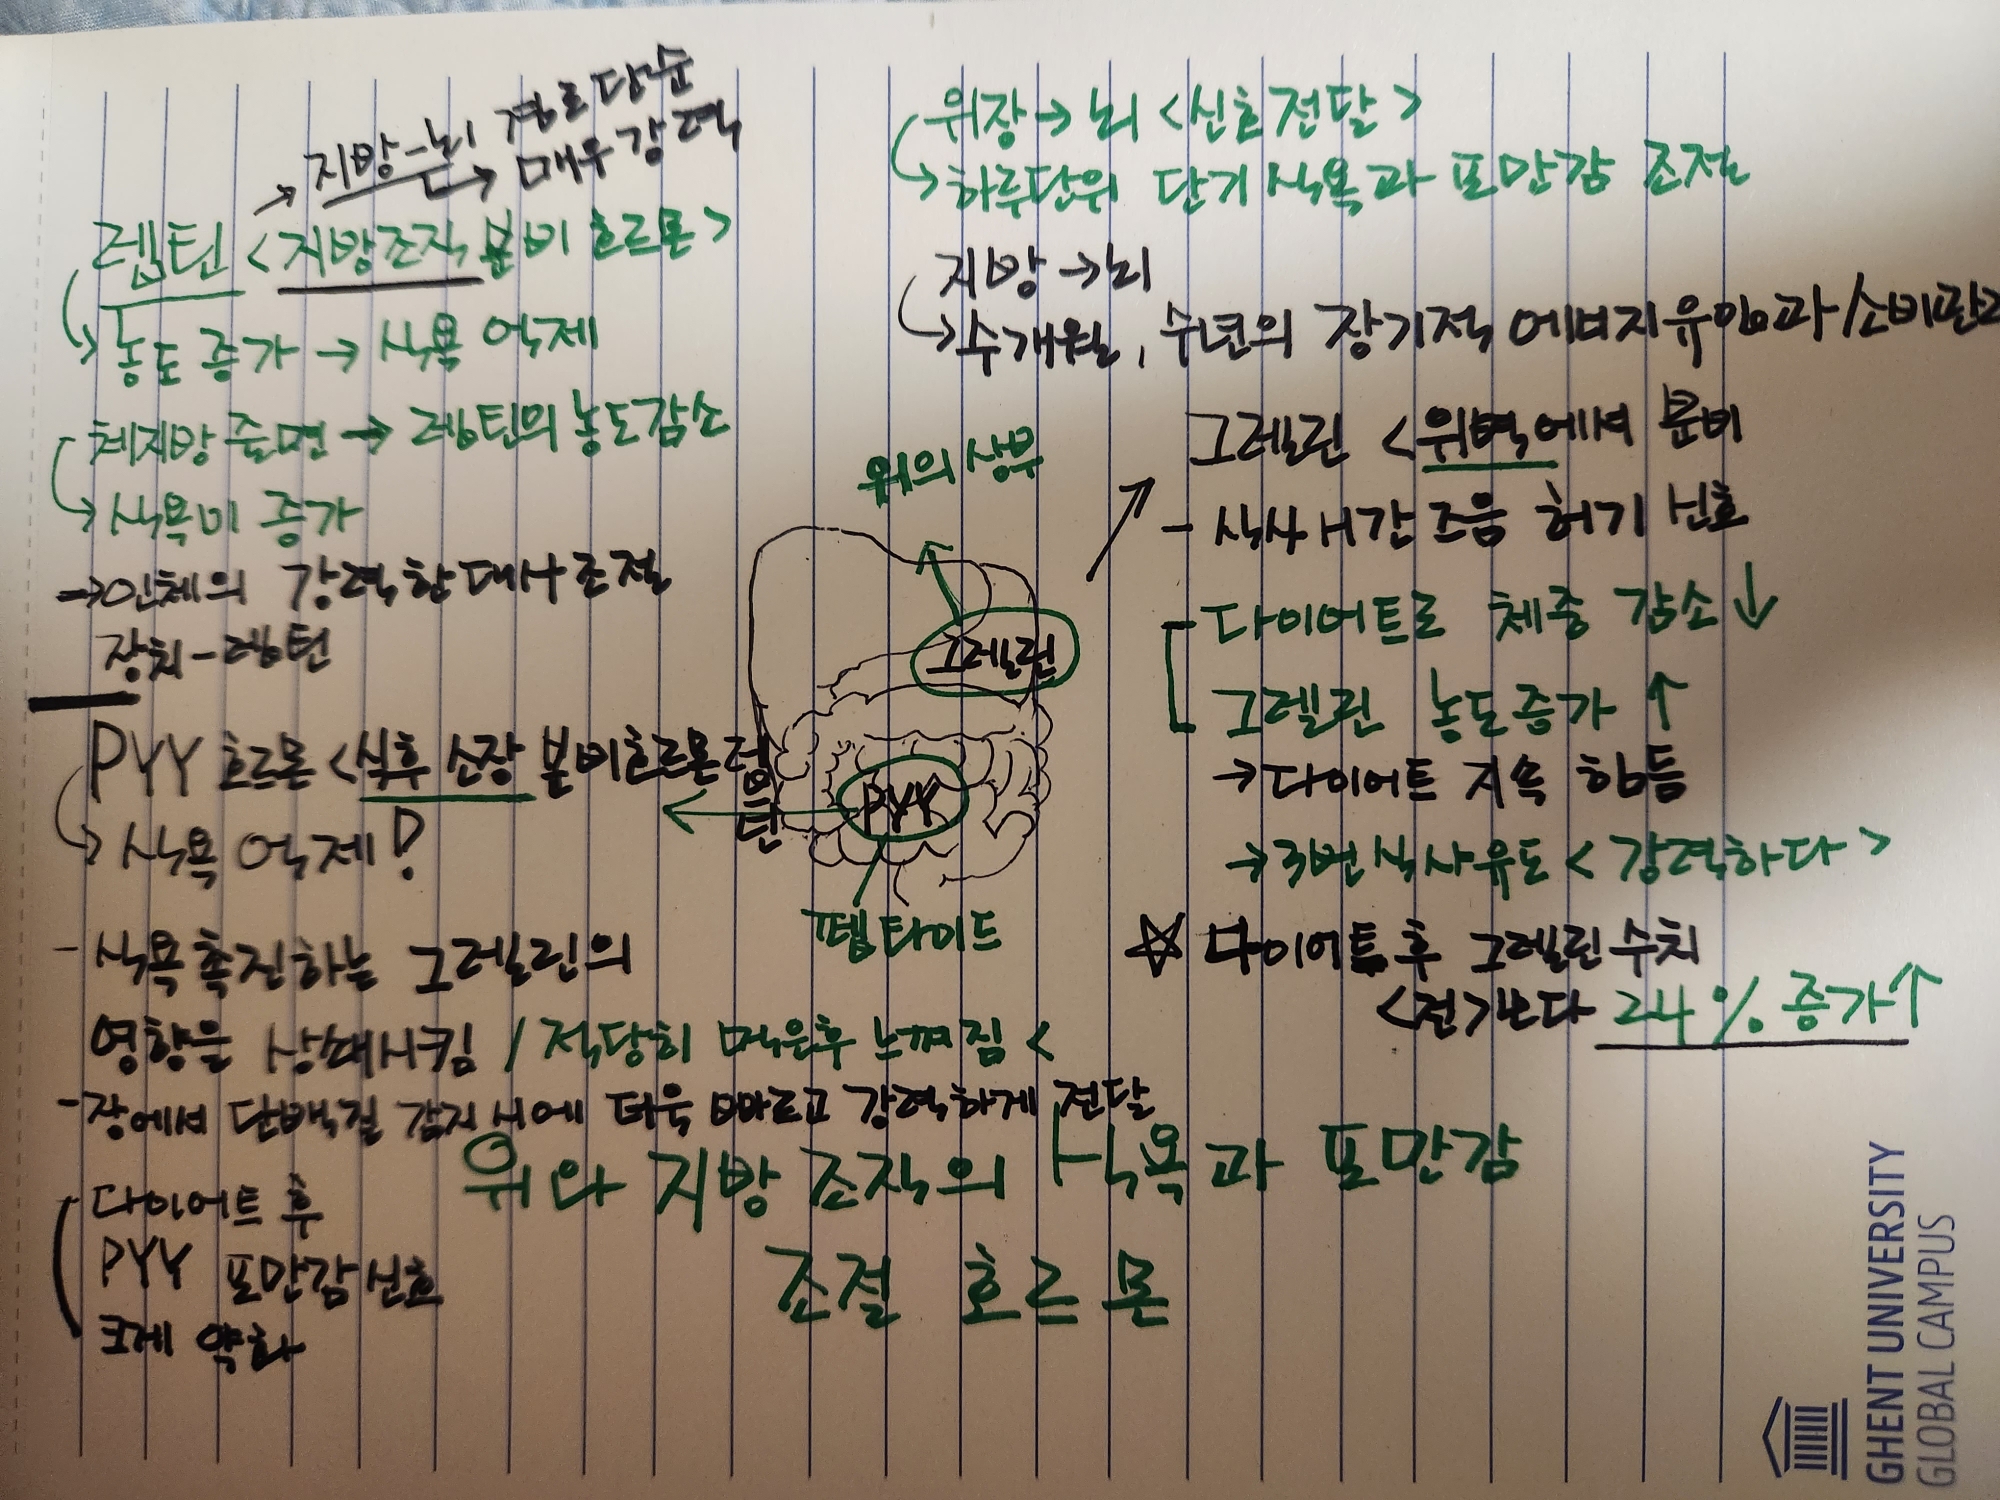 지방-뇌 경로 단순
→ 매우 강력
렙틴 <지방조직 분비 호르몬>
농도 증가 → 식욕 억제
체지방 줄면 → 렙틴의 농도감소
식욕이 증가
→ 인체의 강력한 대사조절
장치-렙틴
PYY 호르몬 <식후 소장 분비호르몬 렙틴
식욕 억제!
- 식욕촉진하는 그렐린의
영향을 상쇄시킴 / 적당히 먹은후 느껴짐 <
- 장에서 단백질 감지 시에 더욱 빠르고 강력하게 전달
다이어트 후
PYY 포만감 신호
크게 약화
위장 → 뇌 <신호전달>
하루단위 단기식욕과 포만감 조절
지방 → 뇌
수개월, 수년의 장기적 에너지유입과/소비관리
위의 상부
그렐린
PYY
펩타이드
그렐린 <위벽에서 분비
- 식사시간 즈음 허기 신호
다이어트로 체중 감소↓
그렐린 농도증가 ↑
→ 다이어트 지속 힘듦
→ 3번 식사유도 <강력하다>
☆ 다이어트 후 그렐린수치
<전보다 24% 증가↑
위와 지방 조직의 식욕과 포만감
조절 호르몬
GHENT UNIVERSITY
GLOBAL CAMPUS